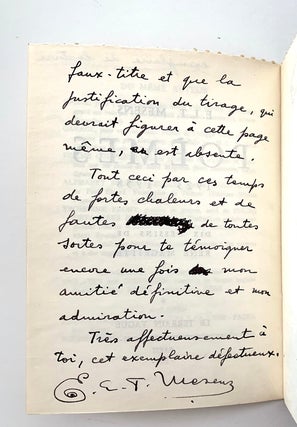 faux-titre et que la
justification du tirage, qui
devrait figurer à cette page
même, est absente.
Tout ceci par ces temps
de fortes chaleurs et de
fautes de toutes
sortes pour te témoigner
encore une fois mon
amitié définitive et mon
admiration.
Très affectueusement à
toi, cet exemplaire défectueux.
E. L. T. Mesens